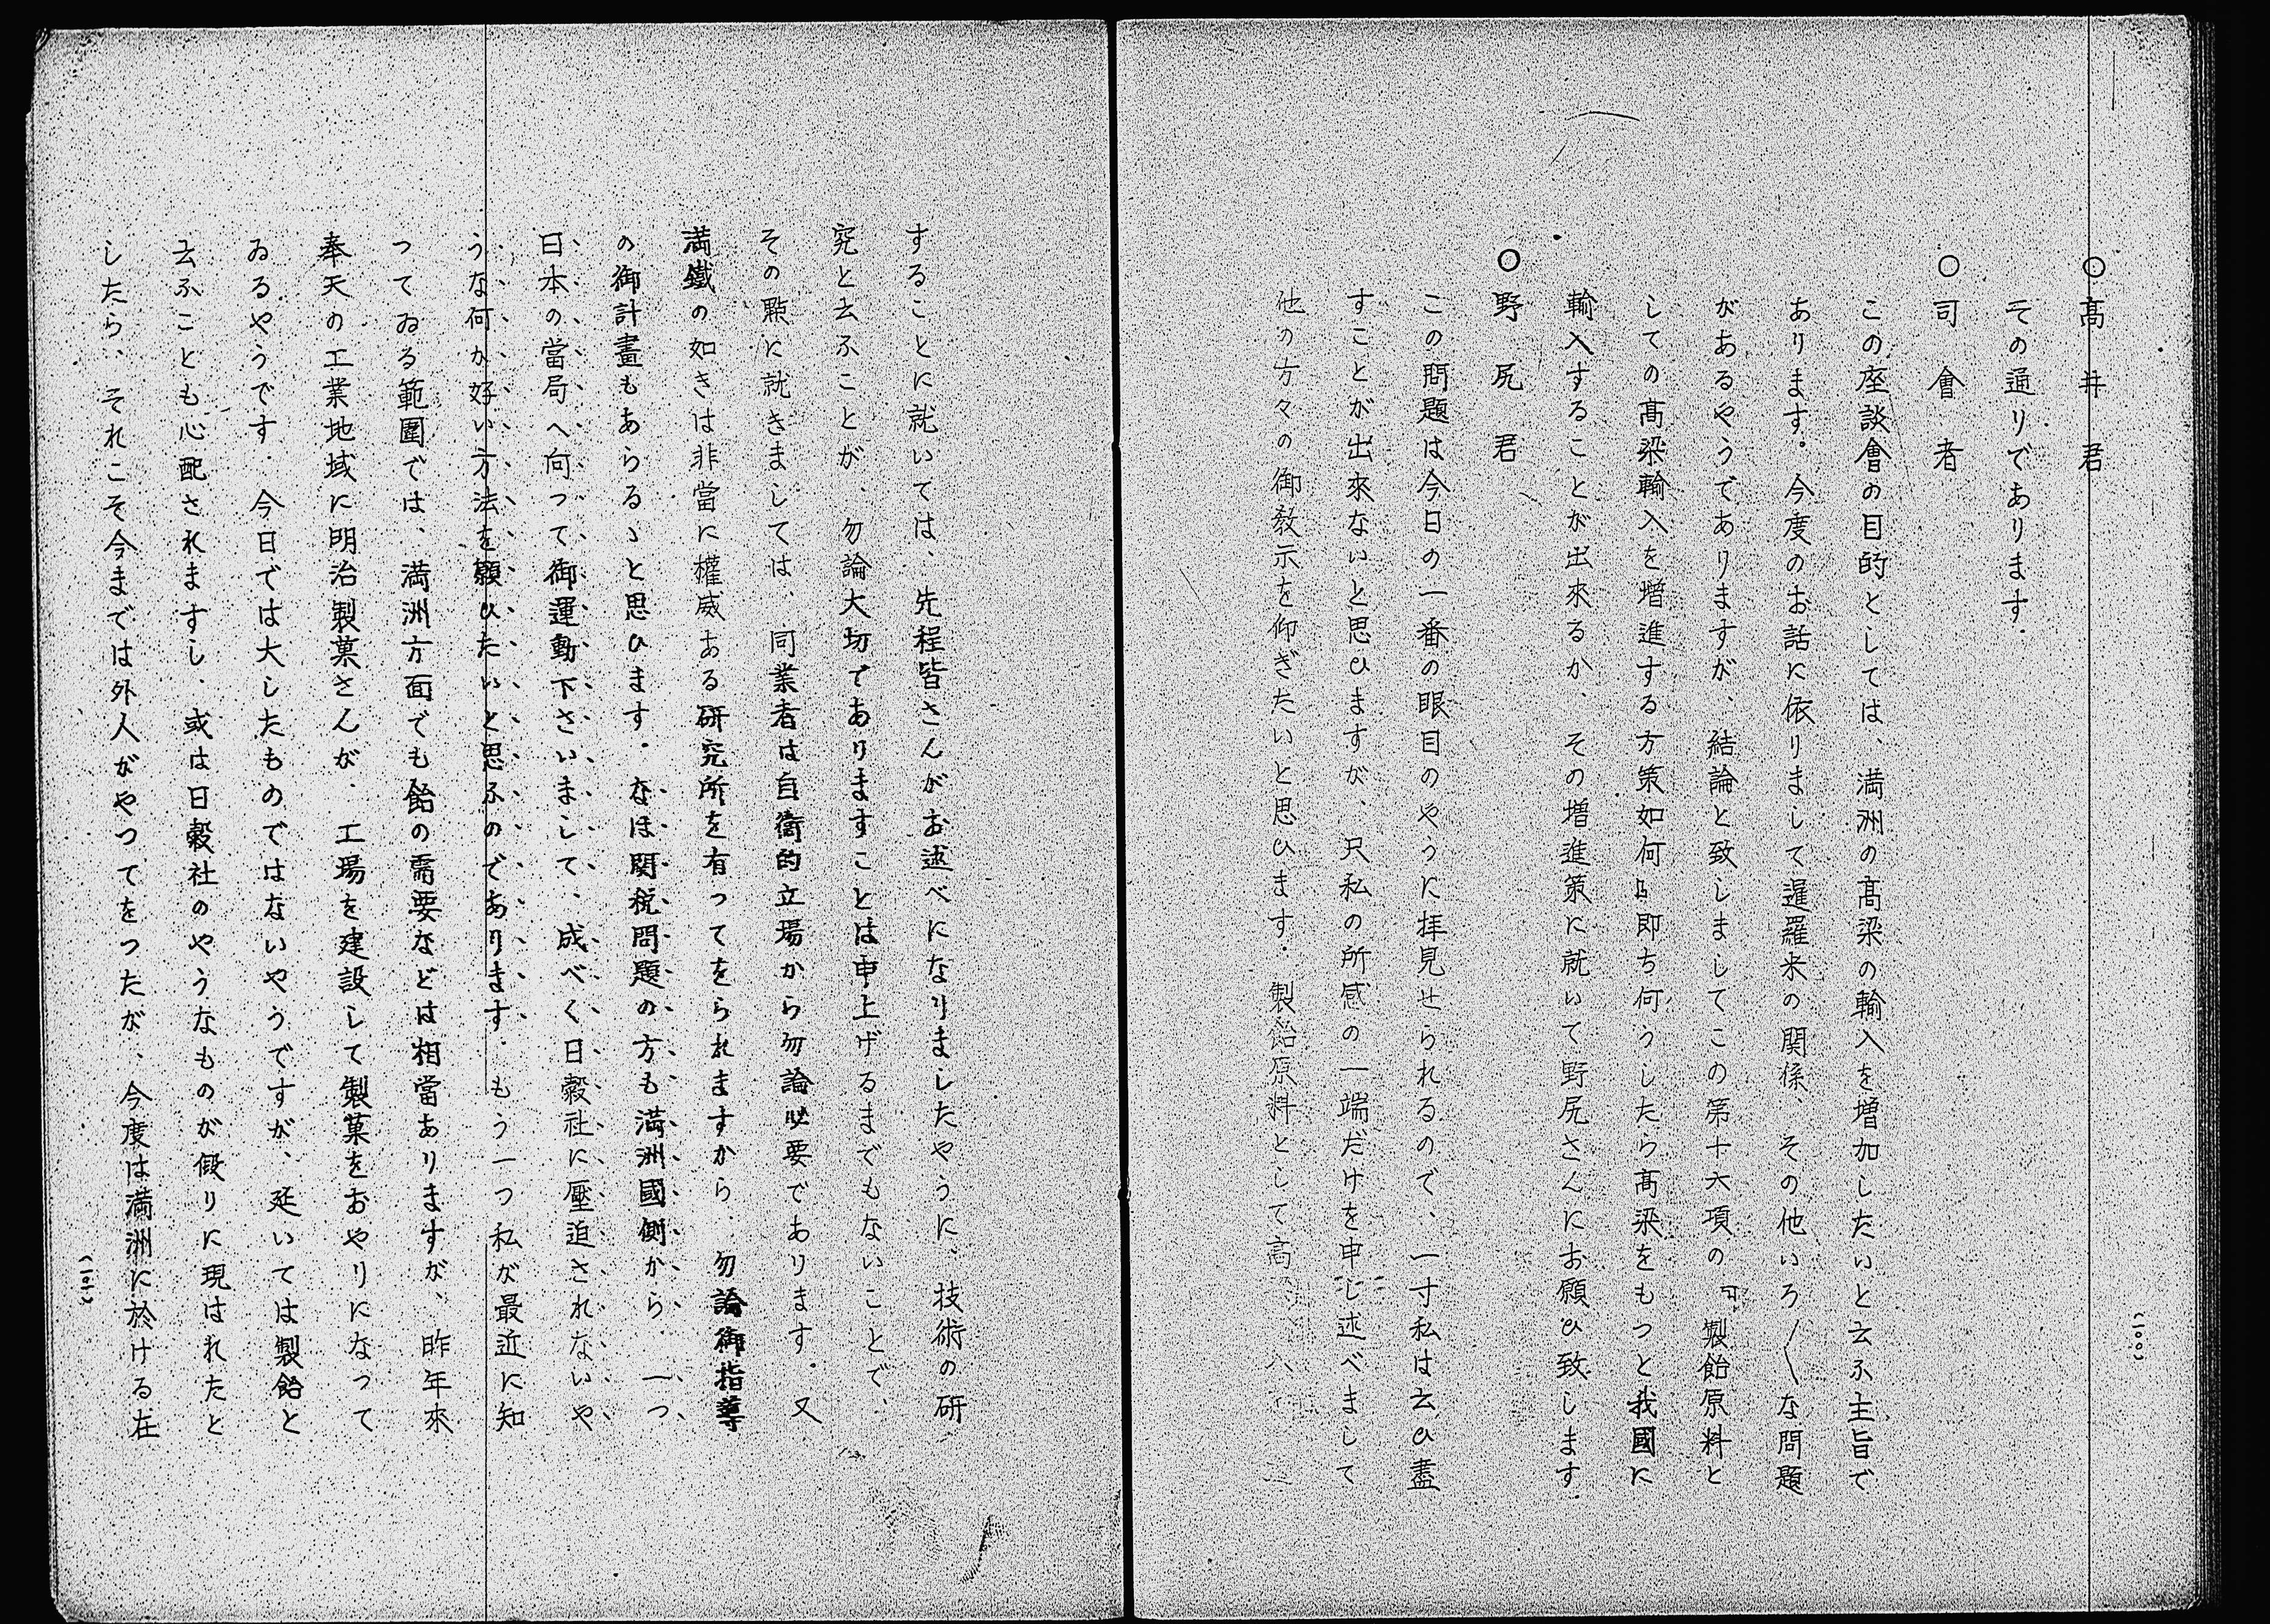 (一〇〇)
○髙井君
その通りであります.
○司會者
この座談會の目的としては、満洲の髙梁の輸入を増加したいと云ふ主旨で
あります。今度のお話に依りまして暹羅米の関係、その他いろ〳〵な問題
があるやうでありますが、結論と致しましてこの第十六項の『製飴原料と
しての髙梁輸入を増進する方策如何』即ち何うしたら髙梁をもつと我國に
輸入することが出來るか、その増進策に就いて野尻さんにお願ひ致します.
○野尻君
この問題は今日の一番の眼目のやうに拝見せられるので、一寸私は云ひ盡
すことが出來ないと思ひますが、只私の所感の一端だけを申し述べまして
他の方々の御教示を仰ぎたいと思ひます.製飴原料として高
することに就いては、先程皆さんがお述べになりましたやうに、技術の研
究と云ふことが、勿論大切でありますことは申上げるまでもないことで、
その點に就きましては、同業者は自衞的立場から勿論必要であります.又
満鐵の如きは非當に權威ある研究所を有ってをられますから、勿論御指導
の御計畫もあらるゝと思ひます.なほ関税問題の方も満洲國側から、一つ
日本の當局へ向って御運動下さいまして、成べく日穀社に壓迫されないや
うな何か好い方法を願ひたいと思ふのであります.もう一つ私が最近に知
つてゐる範圍では、満洲方面でも飴の需要などは相當ありますが、昨年來
奉天の工業地域に明治製菓さんが、工場を建設して製菓をおやりになって
ゐるやうです.今日では大したものではないやうですが、延いては製飴と
云ふことも心配されますし、或は日穀社のやうなものが假りに現はれたと
したら、それこそ今までは外人がやつてをつたが、今度は満洲に於ける在
(一〇一)